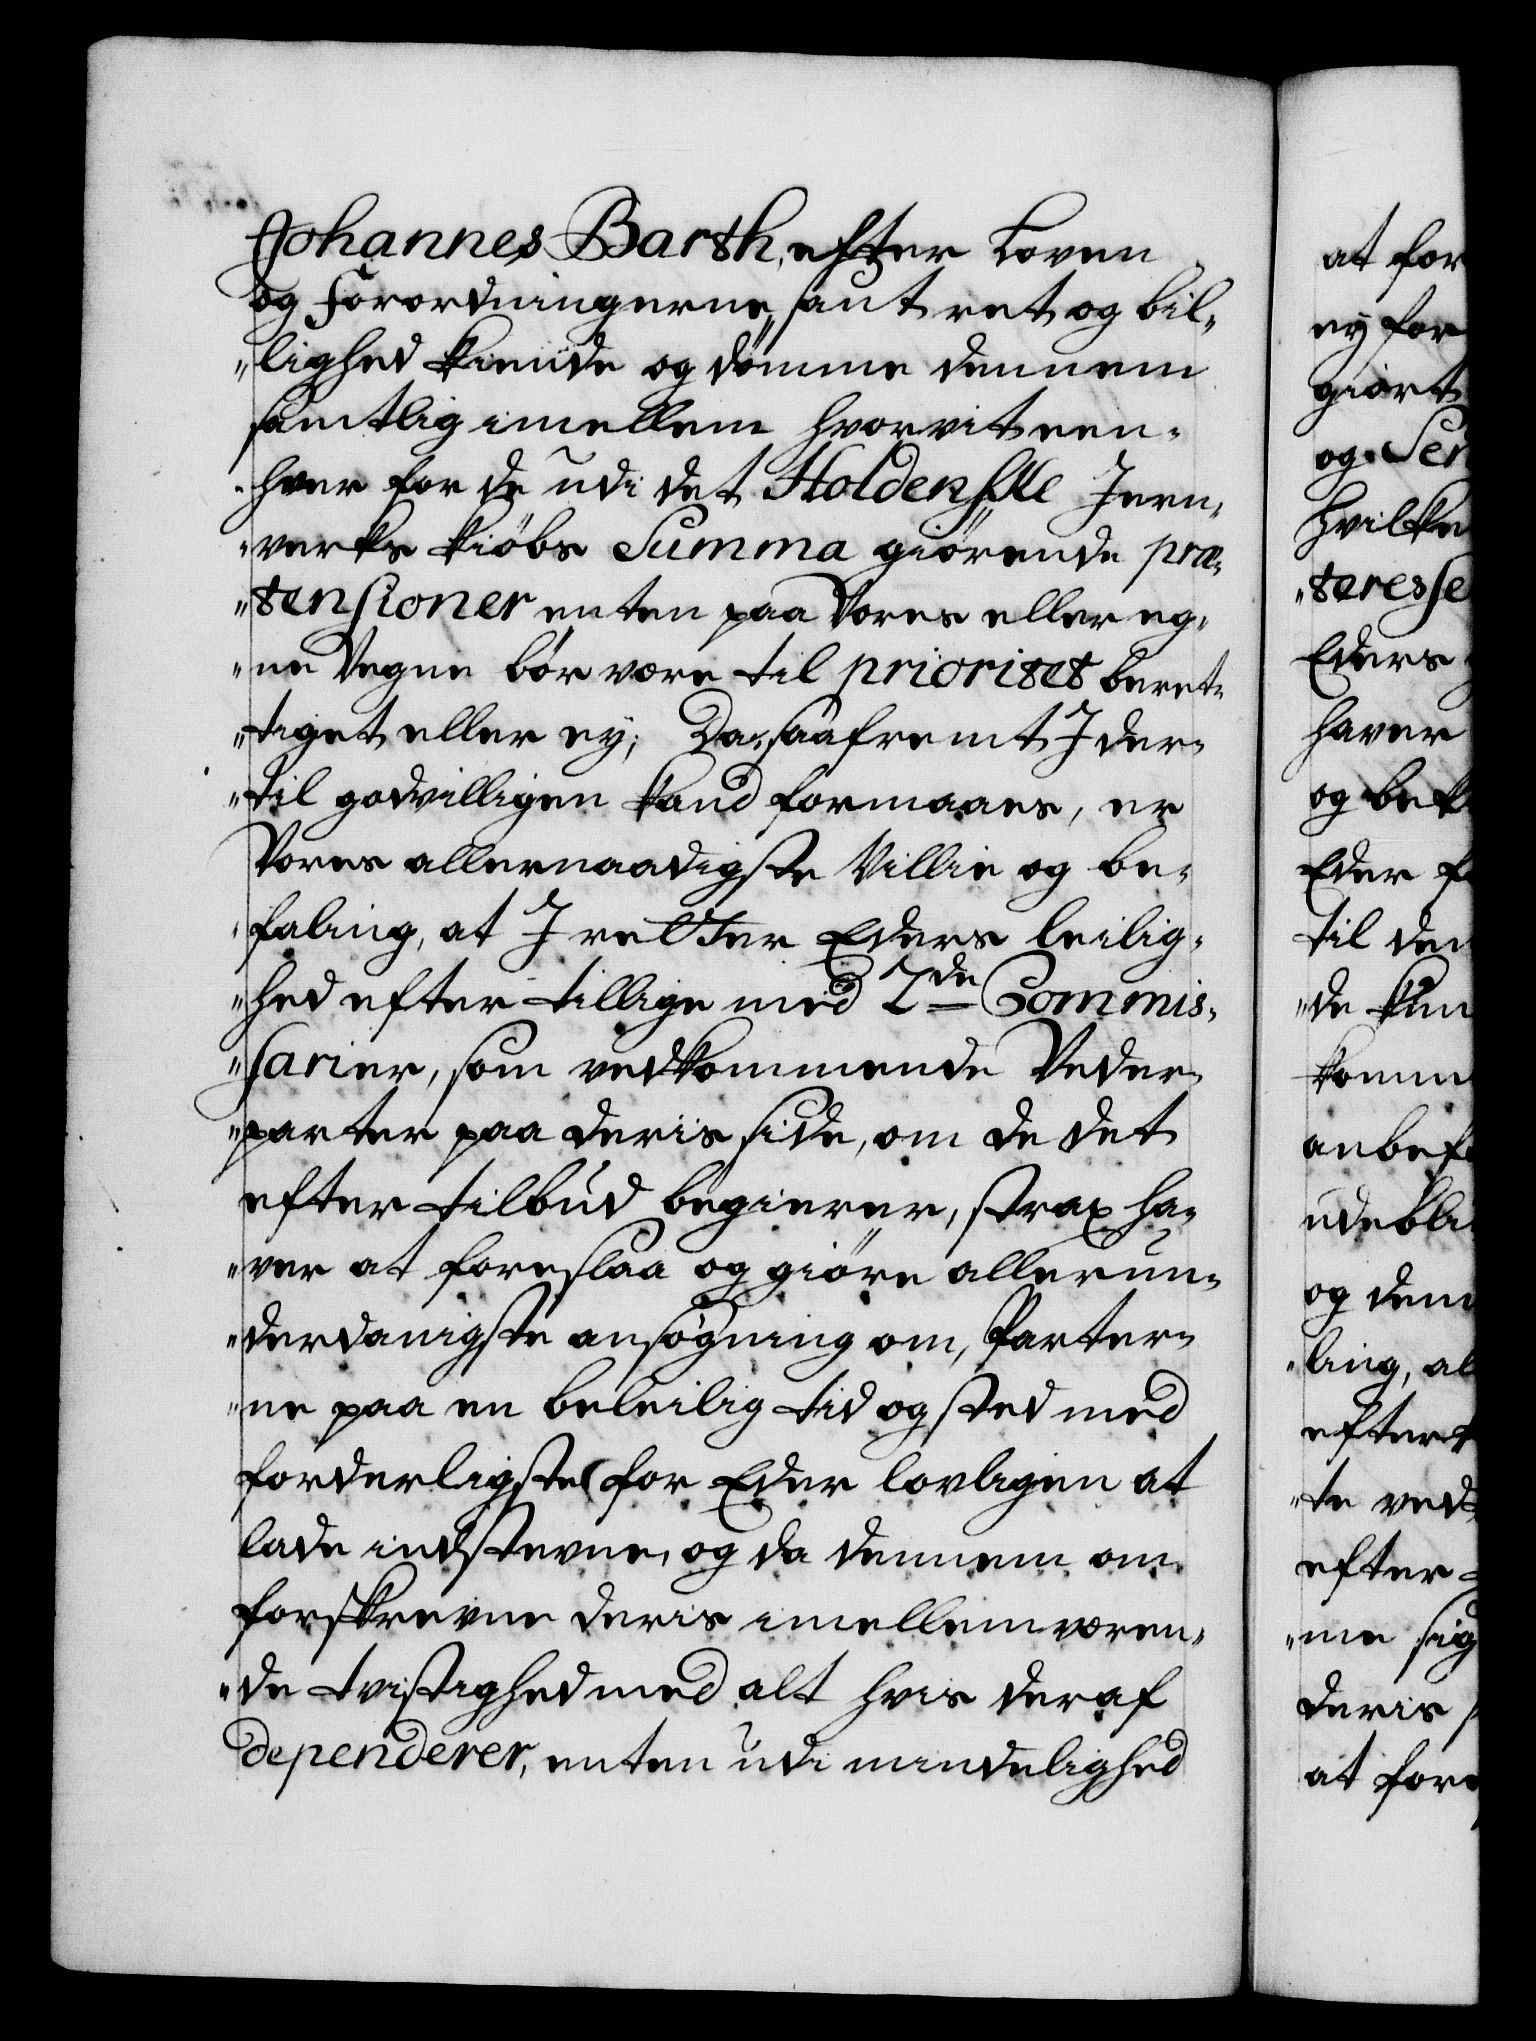 Johannes Barth, efter Loven
og Forordningerne, samt ret og bil„
„lighed kiende og dömme dennem
samtlig imellem hvorvit een„
„hver for de udi det Holdenske Jern„
„verks kiöbs Summa giörende præ„
„tensioner enten paa Vores eller eg„
„ne Vegne bör være til prioritet beret„
„tiget eller ey; Da, saafremt I der„
„til godvilligen kand formaaes, er
Vores allernaadigste Villie og be„
„faling, at I retter Eders leilig„
„hed efter tillige med 2de Commis„
„sarier, som vedkommende Veder„
„parter paa deris side, om de det
efter tilbud begierer, strax ha„
„ver at foreslaa og giöre allerun„
„derdanigste ansögning om, Parter„
„ne paa en beleilig tid og sted med
forderligste for Eder lovligen at
lade indstevne, og da dennem om
forskrevne deris imellemværen„
„de tvistighed med alt hvis deraf
dependerer, enten udi mindelighed
at for
ey for
giört
og
hvilke
„teresse
Eders
haver
og bek
Eder
til den
„de kun
komm
anbef
udebli
og dem
„ling, al
efter
„te ved
efter
„me sig
deris
at fore